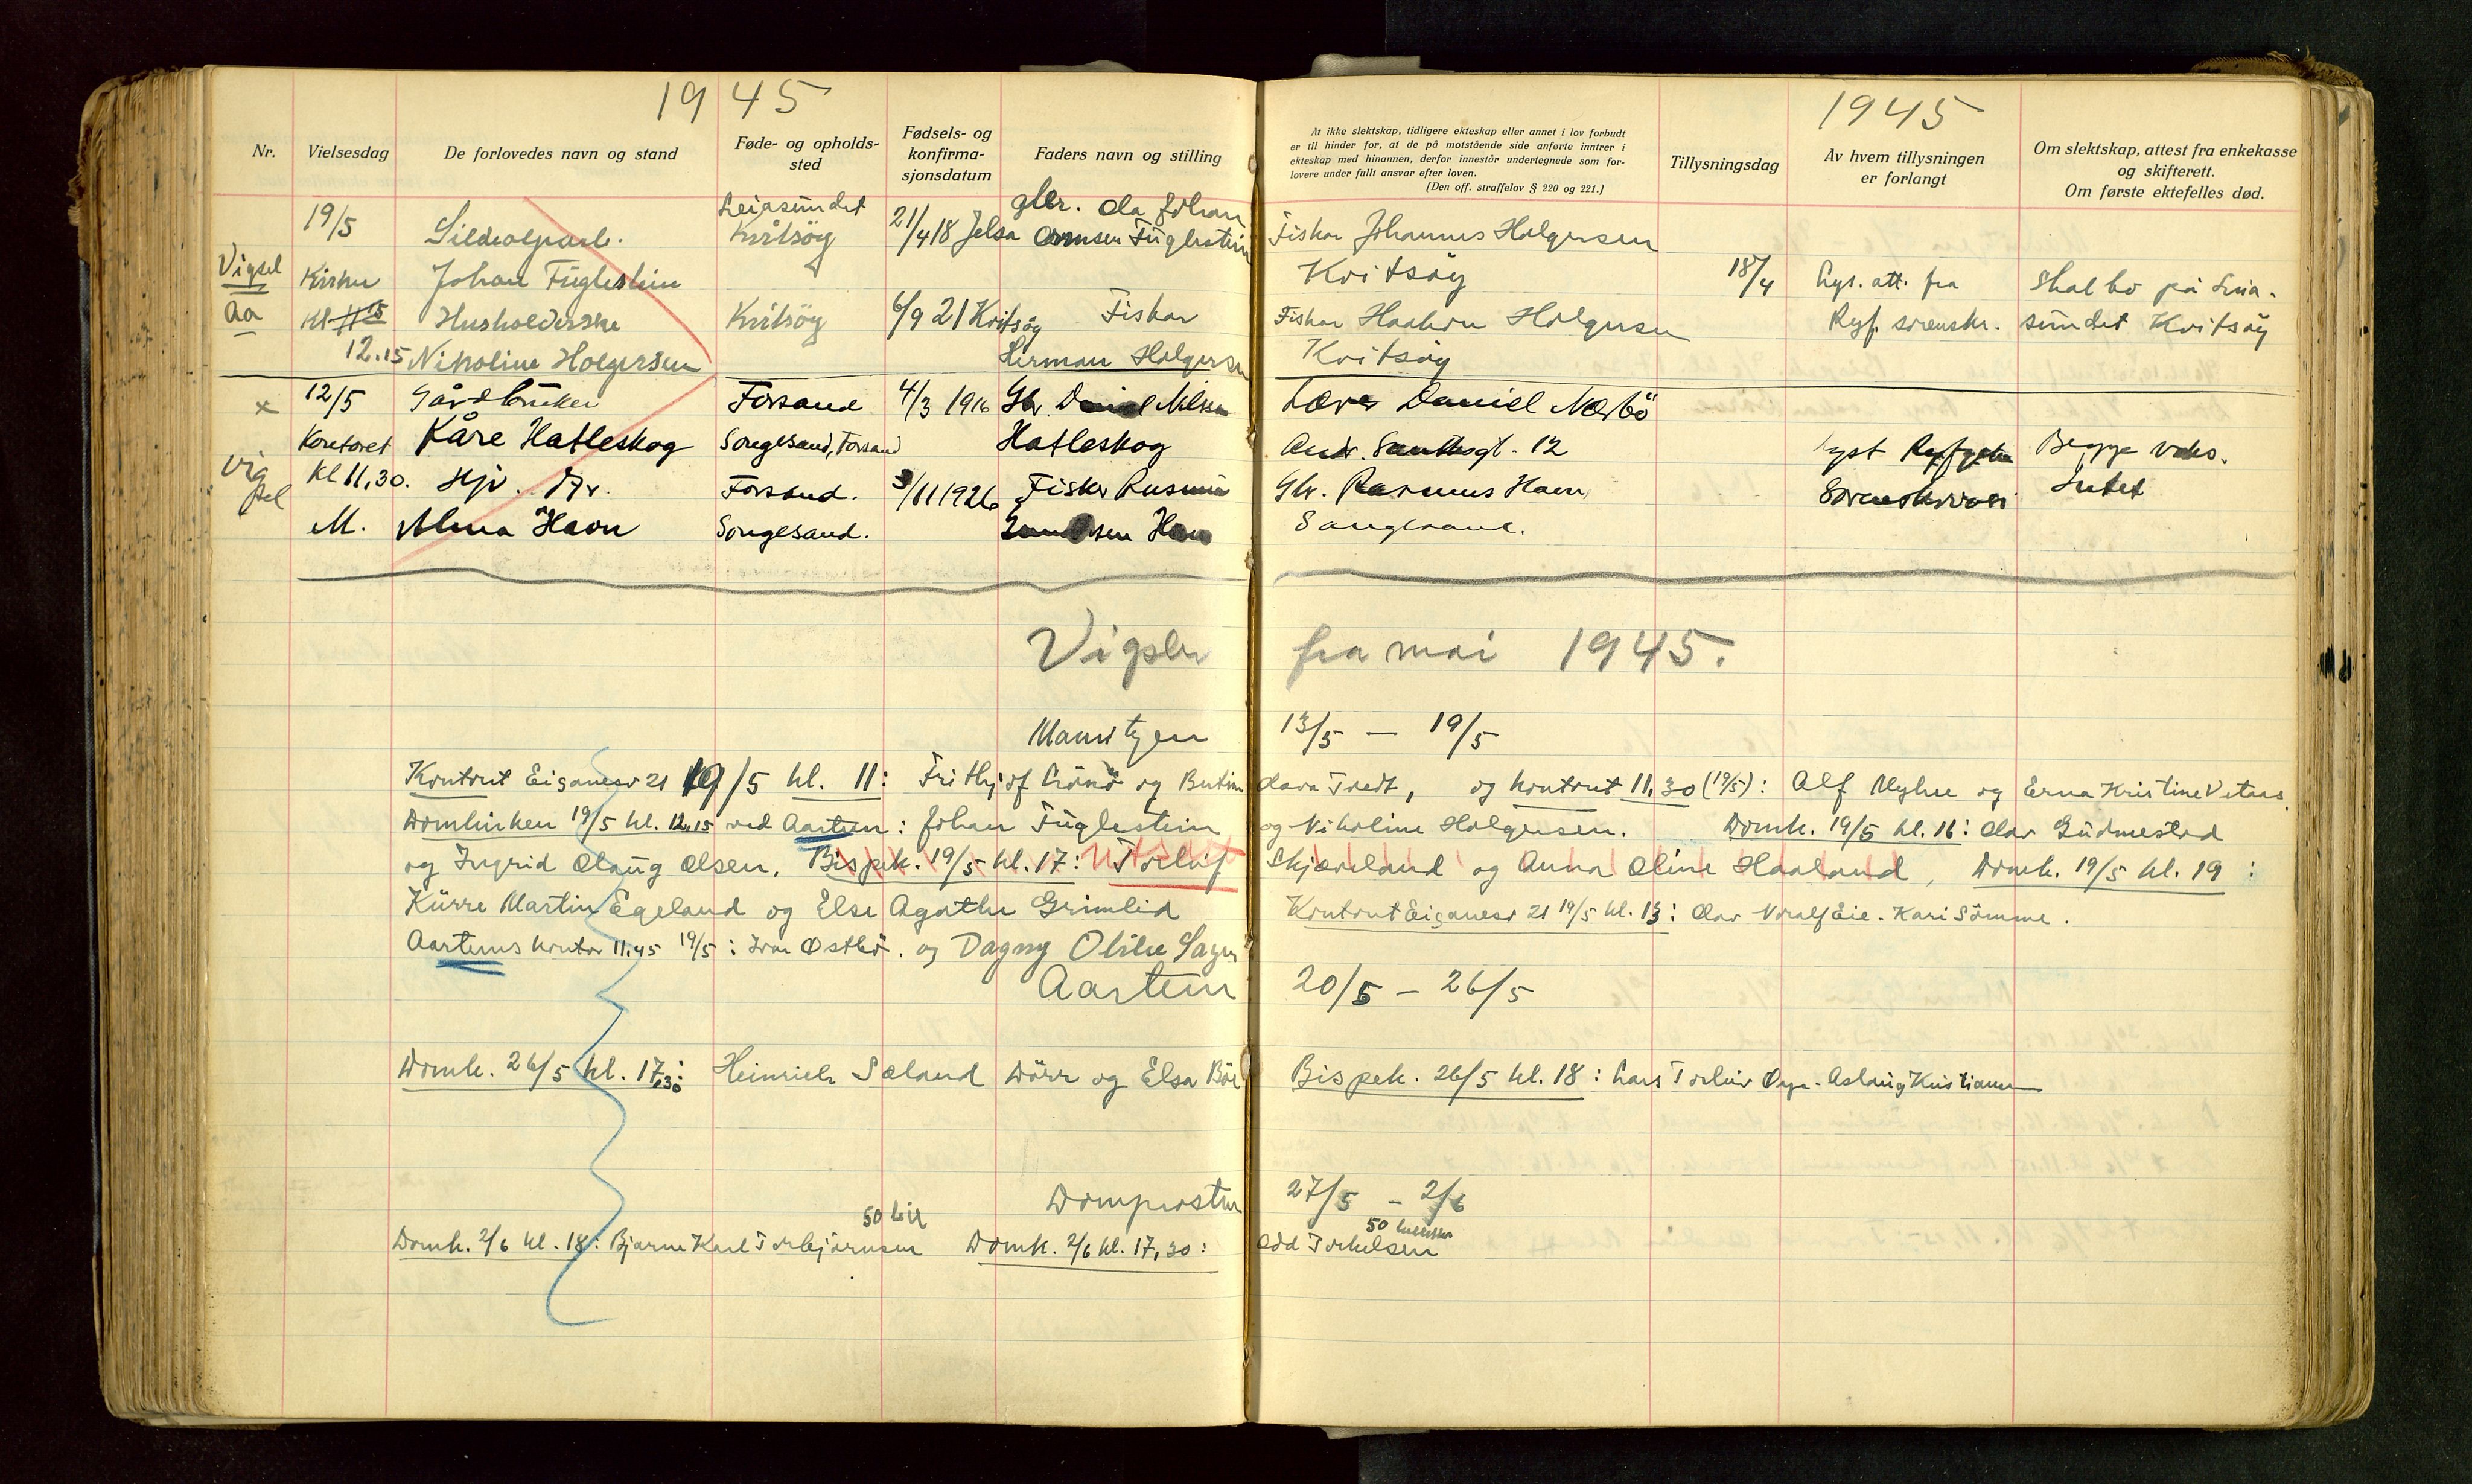 1945
1945
Nr.
Vielsesdag
De forlovedes navn og stand
Føde- og opholds-
sted
Fødsels- og
konfirma-
sjonsdatum
Faders navn og stilling
At ikke slektskap, tidligere ekteskap eller annet i lov forbudt
er til hinder for, at de på motstående side anførte inntrer i
ekteskap med hinannen, derfor innestår undertegnede som for-
lovere under fullt ansvar efter loven.
(Den off. straffelov § 220 og 221.)
Tillysningsdag
Av hvem tillysningen
er forlangt
Om slektskap, attest fra enkekasse
og skifterett.
Om første ektefelles død.
Vigsel
Aa
19/5
Kirken
Kl 11 15
12.15
Johan Fuglestein
Husholderske
Nikoline Holgersen
Leiasundet
Kvitsøy
Kvitsøy
21/4 18 Jelsa
6/9 21 Kvitsøy
gbr. Ola Johan
Fuglestein
Fisker
Herman Holgersen
Fisker Johannes Holgersen
Kvitsøy
Fisker Haakon Holgersen
Kvitsøy
18/4
Lys. att. fra
Ryf. sorenskr.
Skal bo på Leia-
sundet Kvitsøy
x
Vig
sel
12/5
Kontoret
Kl 11,30.
M.
Gårdbruker
Kåre Hatleskog
Hjv. Frk.
Alma Haon
Forsand
Songesand, Forsand
Forsand.
Songesand.
4/3 1916
3/11 1926
Gbr. Daniel Nilsen
Hatleskog
Fisker Rasmus
Lærer Daniel Nærbö
12
Gbr. Rasmus Haon
Songesand.
lyst Ryfylke
Sorenskriveri
Begge vaks.
Intet
Vigsler fra mai 1945.
Mauritzen 13/5 — 19/5
Kontoret Eiganesv 21 19/5 kl. 11: Frithjof Grönö og Clara Tredt, og kontoret 11,30 (19/5): Alf Myhre og Erna Kristine Vetaas.
Domkirken 19/5 kl. 12,15 ved Aartun: Johan Fuglestein og Nikoline Holgersen. Domk. 19/5 kl. 16: Olav Gudmestad
og Ingrid Olaug Olsen. Bispek. 19/5 kl. 17: Torleif Skjæveland og Anna Oline Haaland, Domk. 19/5 kl. 19:
Kurre Martin Egeland og Else Agathe Grimlid Kontoret Eiganesv 21 19/5 kl. 13: Olav Noralf Eie - Kari Sömme.
Aartuns kontor 11,45 19/5: Ivar Østbö. og Dagny Oline
Aartun 20/5 — 26/5
Domk. 26/5 kl. 17,30: Heinrich Sæland Dörr og Elsa Böe Bispek. 26/5 kl. 18: Lars Torleiv Øye - Aslaug Kristiansen
Domprosten 27/5 — 2/6
Domk. 2/6 kl. 18: Bjarne Karl Torbjørnsen Domk. 2/6 kl. 17,30: Odd Torkelsen